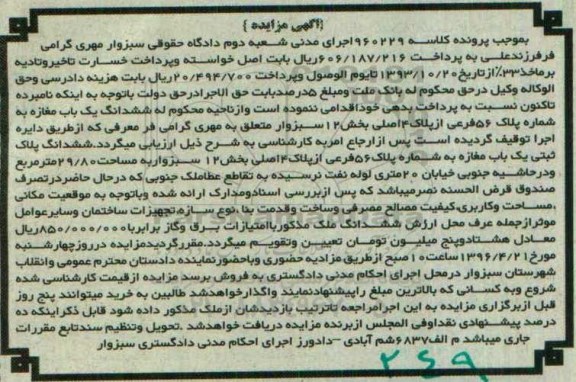 (آگهی مزایده)
بموجب پرونده کلاسه ۹۶۰۲۲۹اجرای مدنی شعبه دوم دادگاه حقوقی سبزوار مهری گرامی
فرفرزندعلی به پرداخت ۶۰۶/۱۸۷/۲۱۶ریال بابت اصل خواسته وپرداخت خسارت تاخیروتادیه
برماخذ۳۳٪ازتاریخ۱۳۹۳/۱۰/۲۰تایوم الوصول وپرداخت ۲۰/۴۹۴/۷۰۰ریال بابت هزینه دادرسی وحق
الوکاله وکیل درحق محکوم له بانک ملت ومبلغ ۵درصدبابت حق الاجرادرحق دولت باتوجه به اینکه نامبرده
تاکنون نسبت به پرداخت بدهی خوداقدامی ننموده است وازناحیه محکوم له ششدانگ یک باب مغازه به
شماره پلاک ۵۶فرعی ازپلاک۴اصلی بخش۱۲سبزوار متعلق به مهری گرامی فر معرفی که ازطرق دایره
اجرا توقیف گردیده است پس ازارجاع امربه کارشناسی به شرح ذیل ارزیابی میگردد.ششدانگ پلاک
ثبتی یک باب مغازه به شماره پلاک۵۶فرعی ازپلاک۴اصلی بخش۱۲ سبزواربه مساحت۲۹/۸۰مترمربع
ودرحاشیه جنوبی خیابان ۲۰متری لوله نفت نرسیده به تقاطع عطاملک جنوبی که درحال حاضردرتصرف
صندوق قرض الحسنه نصرمیباشد که پس ازبررسی اسنادومدارک ارائه شده وباتوجه به موقعیت مکانی
،مساحت وکاربری،کیفیت مصالح مصرفی وساخت وقدمت بنا ،نوع سازه،تجهیزات ساختمان وسایرعوامل
موثرازجمله عرف محل ارزش ششدانگ ملک مذکورباامتیازات برق وگاز برابربا۸۵۰/۰۰۰/۰۰۰ریال
معادل هشتادوپنج میلیون تومان تعیین وتقویم میگردد.مقررگردیدمزایده درروزچهارشنبه
مورخ۱۳۹۶/۴/۲۱ساعت۱۰صبح ازطریق مزادیه حضوری وباحضورنماینده دادستان محترم عمومی وانقلاب
شهرستان سبزوار درمحل اجرای احکام مدنی دادگستری به فروش برسد مزایده ازقیمت کارشناسی شده
شروع وبه کسانی که بالاترین مبلغ راپیشنهادنمایند واگذارخواهدشد طالبین به خرید میتوانند پنج روز
قبل ازبرگزاری مزایده به این اجرامراجعه تاترتیب بازدیدشان ازملک مذکور داده شود قابل ذکراینکه ده
درصد پیشنهادی نقداوفی المجلس ازبرنده مزایده دریافت خواهدشد .تحویل وتنظیم سندتابع مقررات
جاری میباشد م الف۶۸۳۷شم آبادی –دادورز اجرای احکام مدنی دادگستری سبزوار
۲۴۹